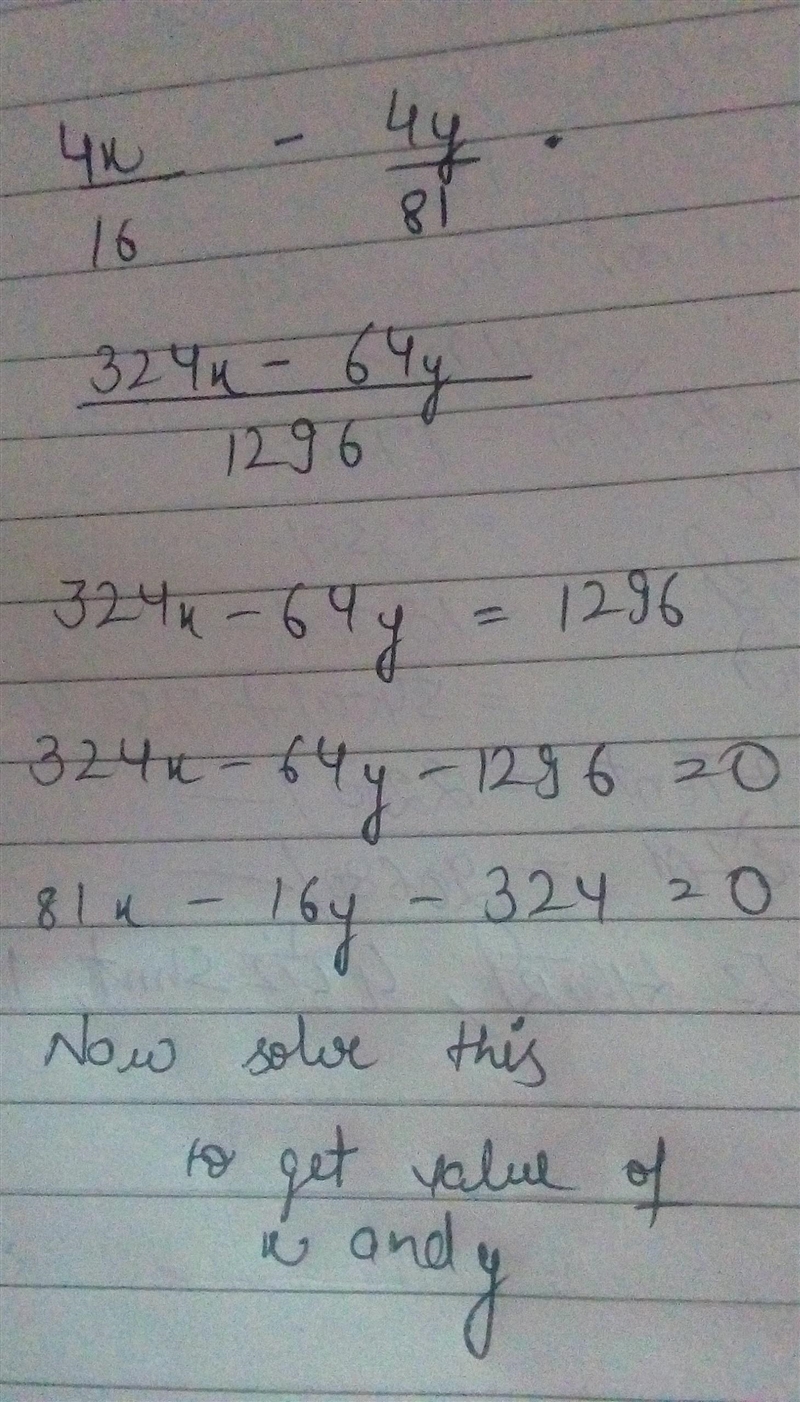 4x/16 - 4y/81 .
324x - 64y
1296
324x - 64y = 1296
324x - 64y - 1296 = 0
81x - 16y - 324 = 0
Now solve this
to get value of
x and y